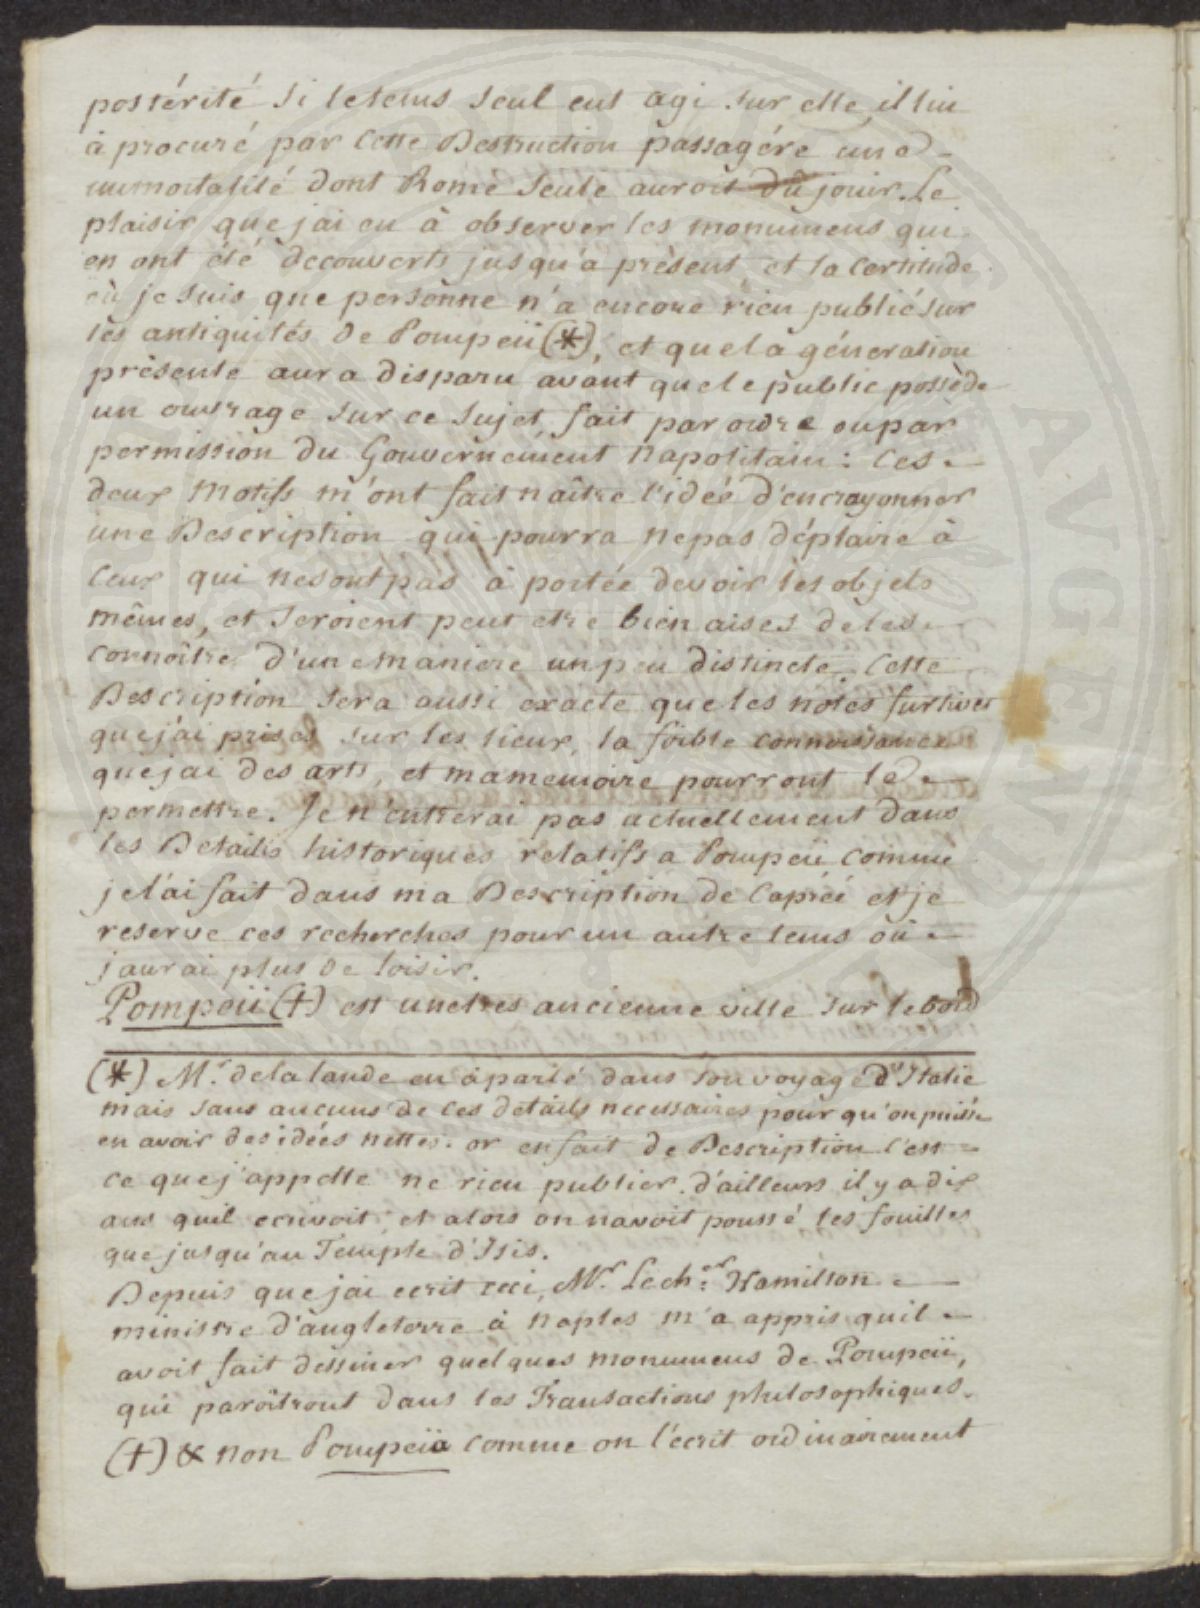 postérité si letems seul eut agi sur elle, il lui
à procuré par cette Destruction passagére une
immortalité dont Rome seule auroit dû jouir. Le
plaisir que jai eu à observer les monumens qui
en ont été decouverts jusqu'à présent, et la certitude
où je suis que personne n'a encore rien publié sur
les antiquités de Pompeii (*), et que la géneration
présente aura disparu avant que le public possède
un ouvrage sur ce sujet fait par ordre ou par
permission du Gouvernement napolitain: Ces
deux motifs m'ont fait naître l'idée d'encrayonner
une Description qui pourra ne pas déplaire à
Ceux qui ne sont pas à portée de voir les objets
mêmes, et seroient peut etre bien aises de les
connoître d'une maniere un peu distincte. Cette
Description sera aussi exacte que les notes furtives
que j'ai prises sur les lieux, la foible connoissance
que jai des arts, et ma memoire pourront le
permettre. Je n'entrerai pas actuellement dans
les Details historiques relatifs a Pompeii comme
je l'ai fait dans ma Description de Caprée et je
reserve ces recherches pour un autre tems où
j'aurai plus de loisir.
Pompeii (†) est une tres ancienne ville sur le bord
(*) Mr. de la lande en à parlé dans son voyage d'Italie
mais sans aucuns de ces details necessaires pour qu'on puisse
en avoir des idées nettes. or en fait de Description c'est
ce que j'appelle ne rien publier. d'ailleurs il y a dix
ans quil ecrivoit, et alors on navoit poussé les fouilles
que jusqu'au Temple d'Isis.
Depuis que jai ecrit ceci, Mr. Le cher. Hamilton
ministre d'angleterre à naples m'a appris quil
avoit fait dessiner quelques monumens de Pompeii,
qui paroîtront dans les Transactions philosophiques.
(†) & non Pompeïa comme on l'écrit ordinairement